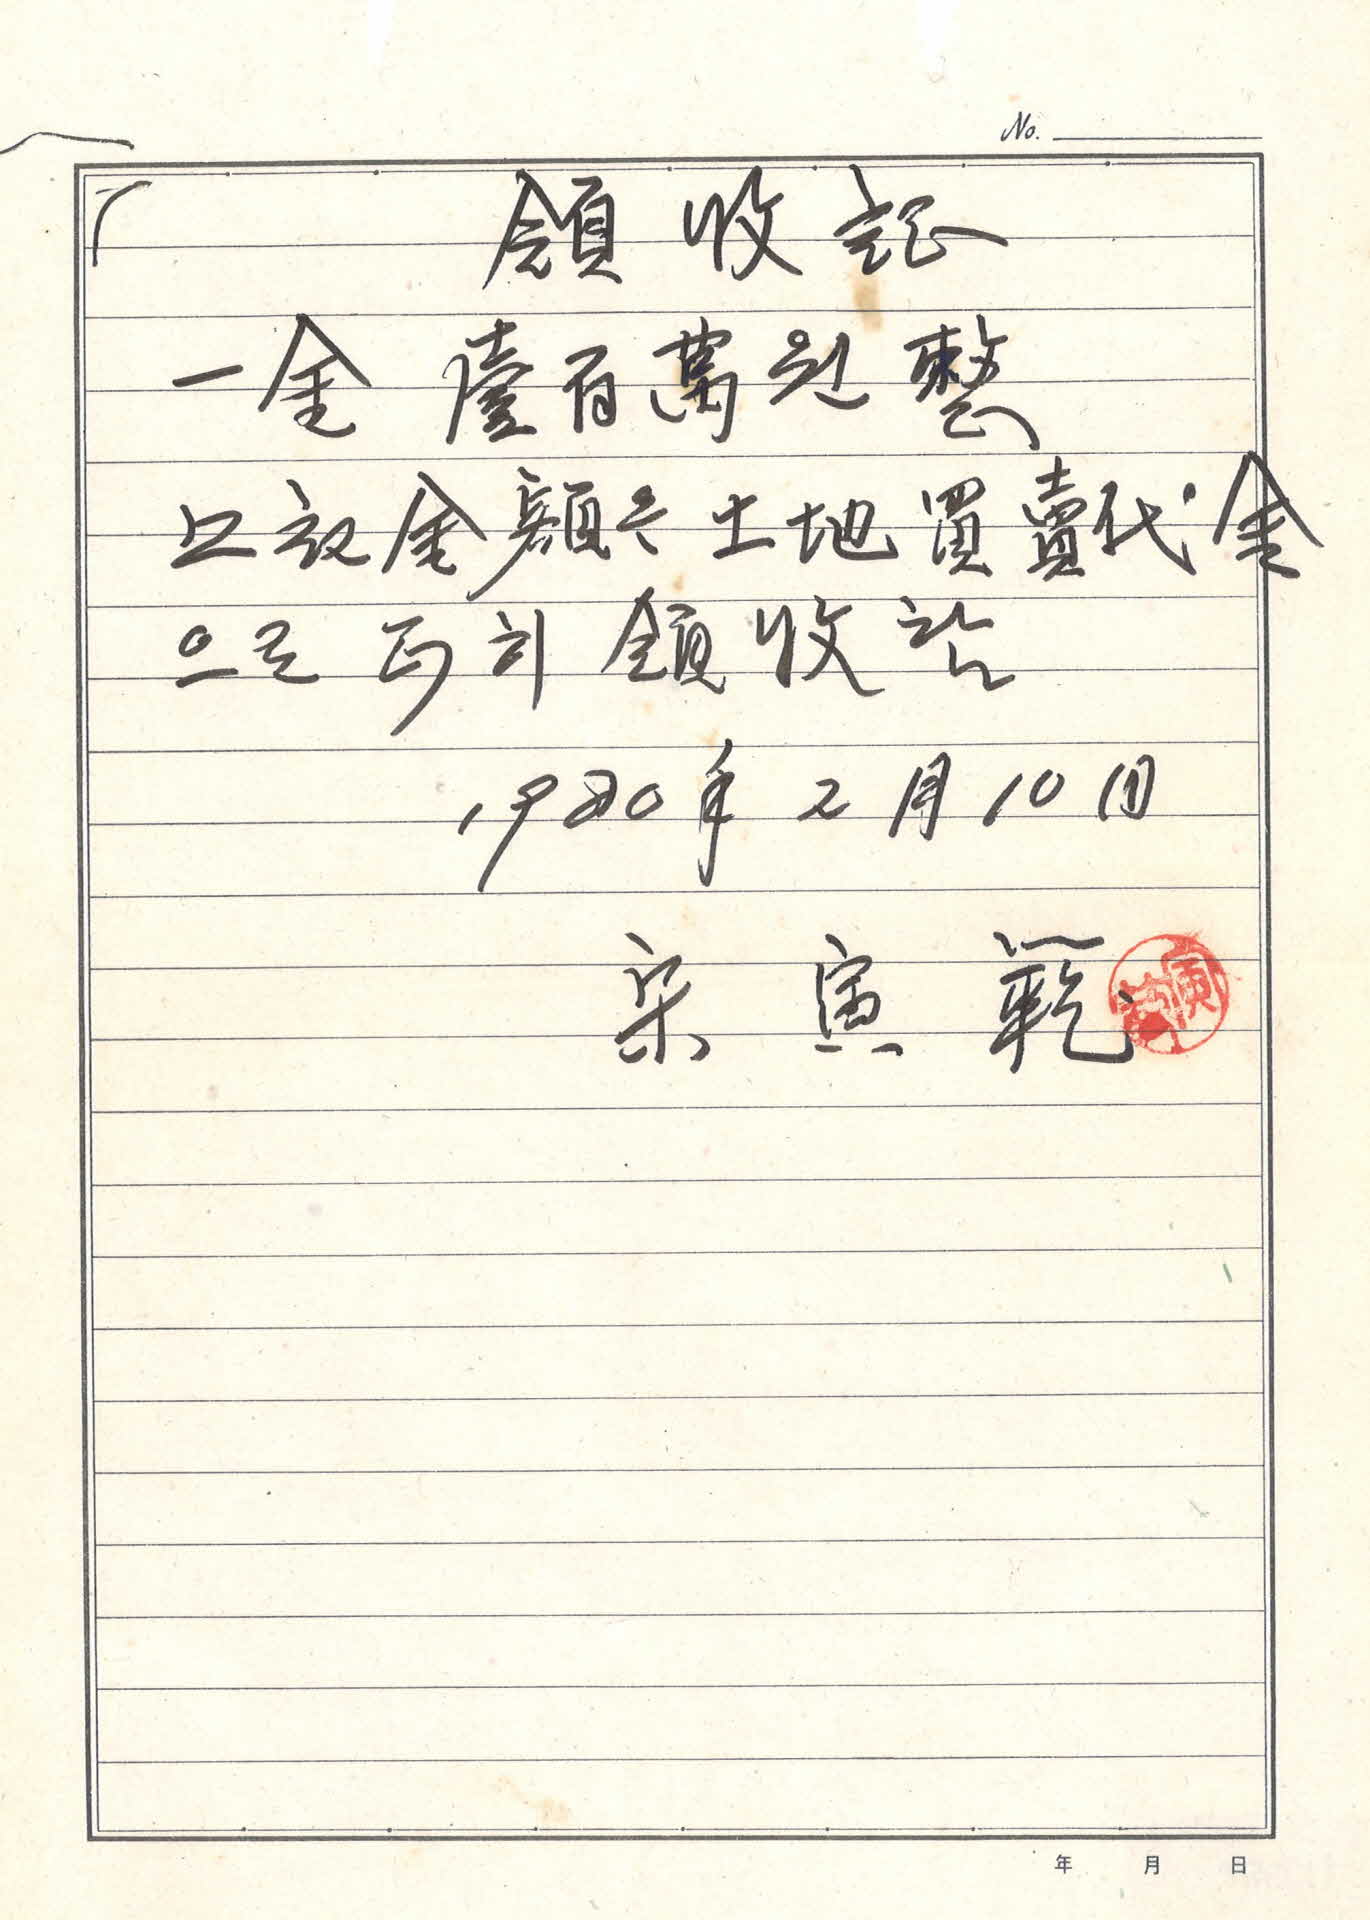 No.
領收証
一金 壹百萬원整
上記金額은 土地買賣代金
으로 正히 領收함
1980年 2月 10日
宋寅範
年 月 日